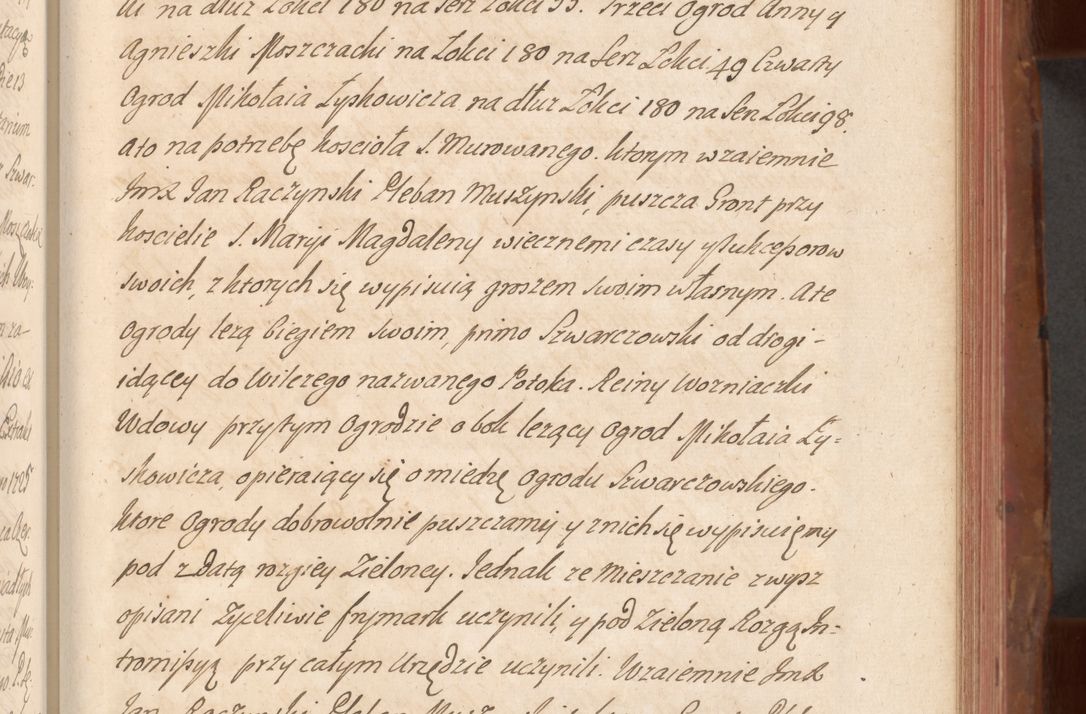 na dłuż Łokci 180 na Serz Łokci 55. Trzeci Ogrod Anny y
Agnieszki Moszczacki na Łokci 180 na Serz Łokci 49 Czwarty
Ogrod Mikołaia Łyskowicza na dłuż Łokci 180 na Serz Łokci 98.
ato na potrzebę koscioła S. Murowanego. ktorym wzaiemnie
Jmx Jan Raczynski Pleban Muszynski, puszcza Gront przy
kosciele S. Maryi Magdaleny wiecznemi czasy y Sukcessorow
swoich, z ktorych się wypisuią groszem swoim własnym. Ate
Ogrody lezą biegiem swoim, primo Szwarczowski od drogi-
idącey do Wilczego nazwanego Potoka. Reiny Wozniaczki
Wdowy przytym Ogrodzie obok lezący Ogrod Mikołaia Ły=
skowicza, opieraiący się o miedzę Ogrodu Szwarczowskiego.
ktore Ogrody dobrowolnie puszczamy y znich się wypisuięmy
pod zdatą rozgiey Zieloney. Jednak ze Mieszczanie zwysz
opisani Zyczliwie frymark uczynili, y pod Zieloną Rozgą In=
tromissyą przy całym Urzędzie uczynili. Wzaiemnie Jmx
Jan Raczynski Pleban